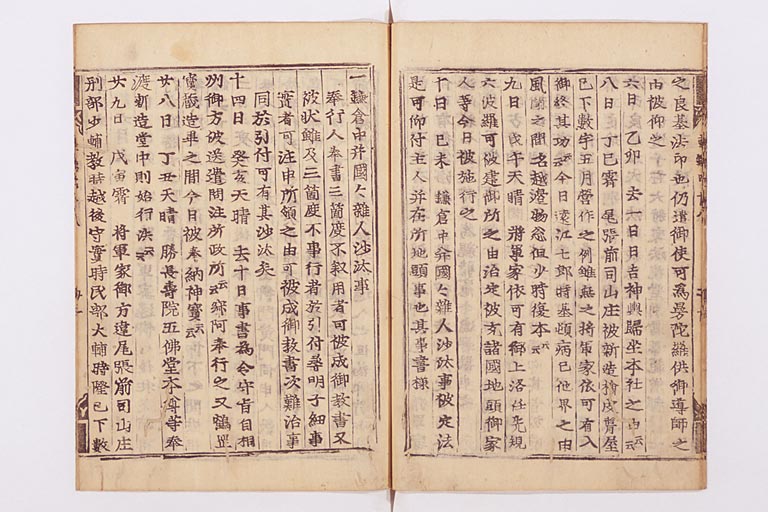 之良基法印也仍遣御使可為曼陀羅供御導師之
由被仰之
六日乙卯 去一日日吉神輿歸坐本社之由云云
八日丁巳霽 尾張前司山庄被新造於成賢屋
已下數宇五月營作之例雖無之將軍家依可有入
御終其功云云今日遠江七郎時基頓病已他界之由
風聞之間名越邊騷忩但少時復本云云
九日戊午天晴 將軍家依可有御上洛任先規
六波羅可被建御所之由治定被充諸國地頭御家
人等今日被施行之
十日 己未 鎌倉中幷國々雜人沙汰事被定法
是可仰付主人幷在所地頭事也其事書様
一鎌倉中幷國々雜人沙汰事
奉行人奉書三箇度不敍用者可被成御教書又
彼状雖及三箇度不事行者於引付尋明子細事
實者可注申所領之由可被成御教書次難治事
同於引付可有其沙汰矣
十四日 癸亥天晴 去十日事書為令守肯自相
州御方被送遣問注所政所云云 鄉阿奉行之又鶴岡
寶殿造畢之間今日被奉納神寶云云
廿八日丁丑天晴 勝長壽院五佛堂本尊等奉
渡新造堂中則始行法云云
廿九日 戊寅霽 將軍家御方違尾張前司山庄
刑部少輔教時越後守實時民部大輔時隆已下數